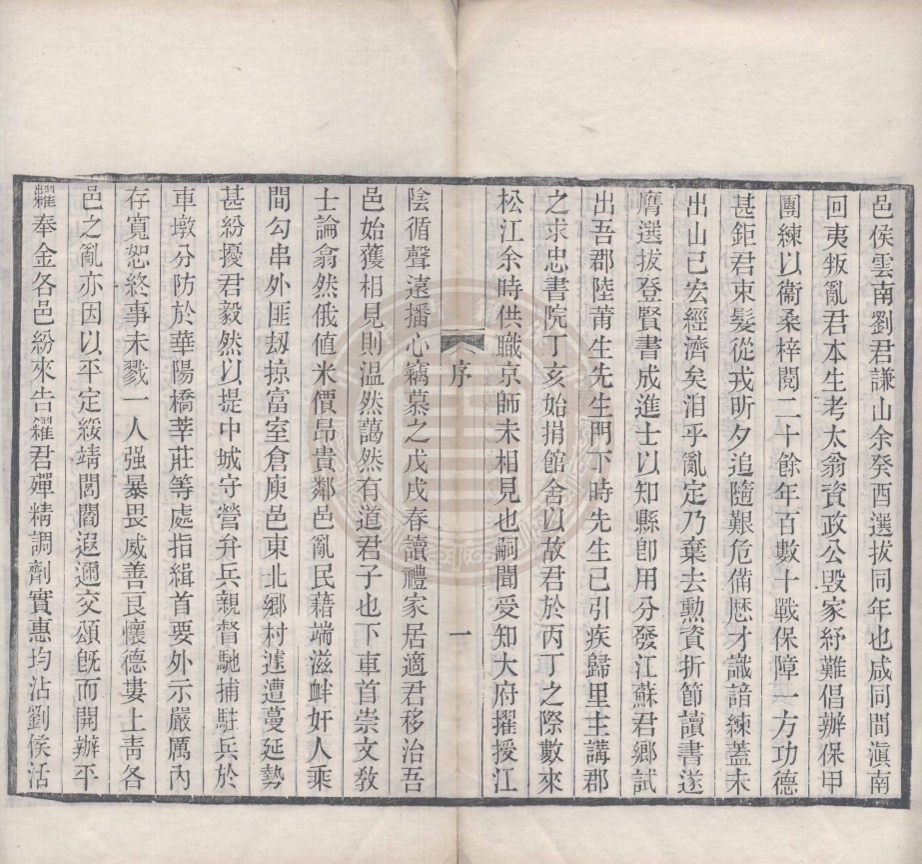 邑侯雲南劉君謙山余癸酉選拔同年也咸同間滇南
回夷叛亂君本生考太翁資政公毁家紓難倡辦保甲
團練以衞桑梓閱二十餘年百數十戰保障一方功德
甚鉅君束髮從戎昕夕追隨艱危備歷才識諳練蓋未
出山已宏經濟矣洎乎亂定乃棄去勳資折節讀書遂
膺選拔登賢書成進士以知縣卽用分發江蘇君鄉試
出吾郡陸莆生先生門下時先生已引疾歸里主講郡
之求忠書院丁亥始捐館舍以故君於丙丁之際數來
松江余時供職京師未相見也嗣聞受知大府擢授江
序
一
陰循聲遠播心竊慕之戊戌春讀禮家居適君移治吾
邑始獲相見則温然藹然有道君子也下車首崇文敎
士論翕然俄値米價昂貴鄰邑亂民藉端滋衅奸人乘
間勾串外匪刼掠富室倉庾邑東北鄉村遽遭蔓延勢
甚紛擾君毅然以提中城守營弁兵親督馳捕駐兵於
車墩分防於華陽橋莘莊等處指緝首要外示嚴厲內
存寬恕終事未戮一人强暴畏威善良懷德婁上青各
邑之亂亦因以平定綏靖閭閻遐邇交頌旣而開辦平
糶奉金各邑紛來告糴君殫精調劑實惠均沾劉侯活